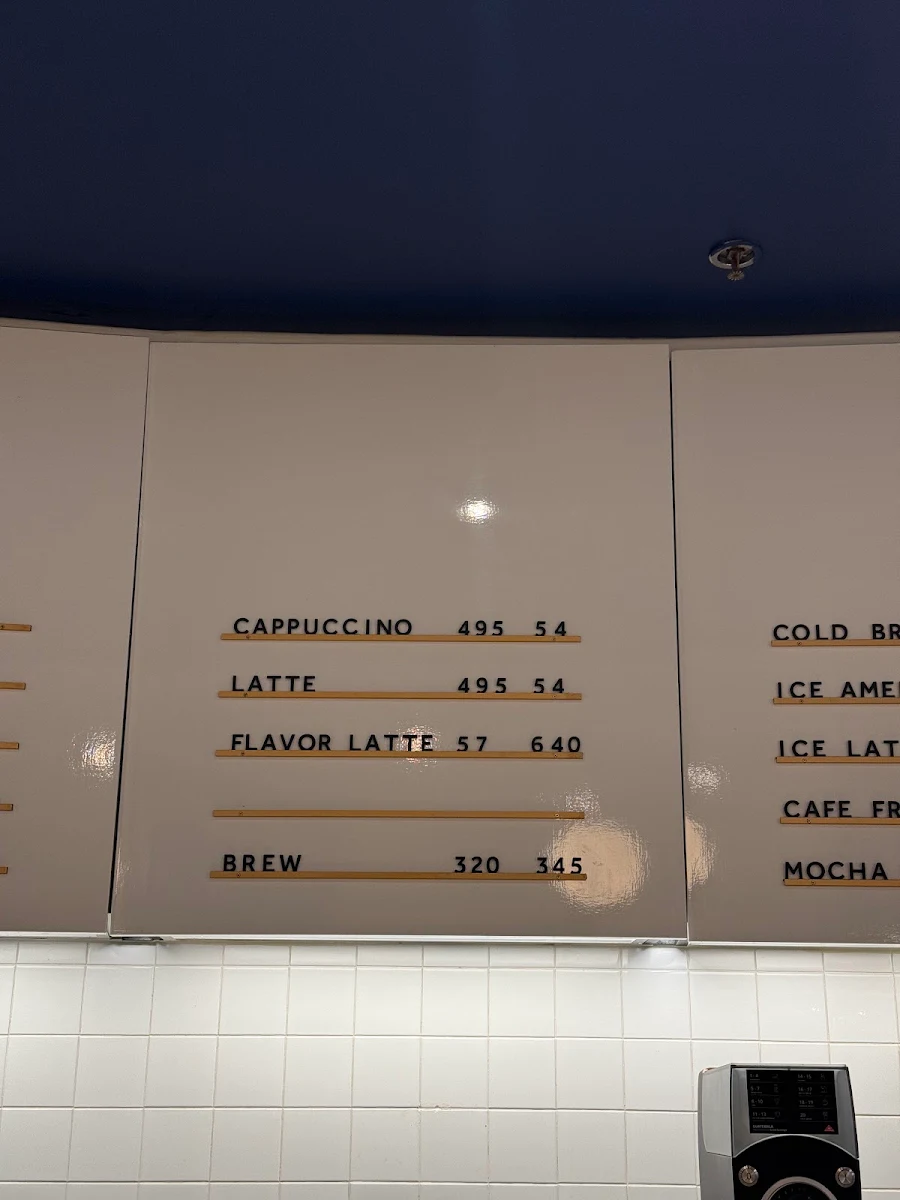 CAPPUCCINO 495 54
LATTE 495 54
FLAVOR LATTE 57 640
BREW 320 345
COLD BR
ICE AME
ICE LAT
CAFE FR
MOCHA